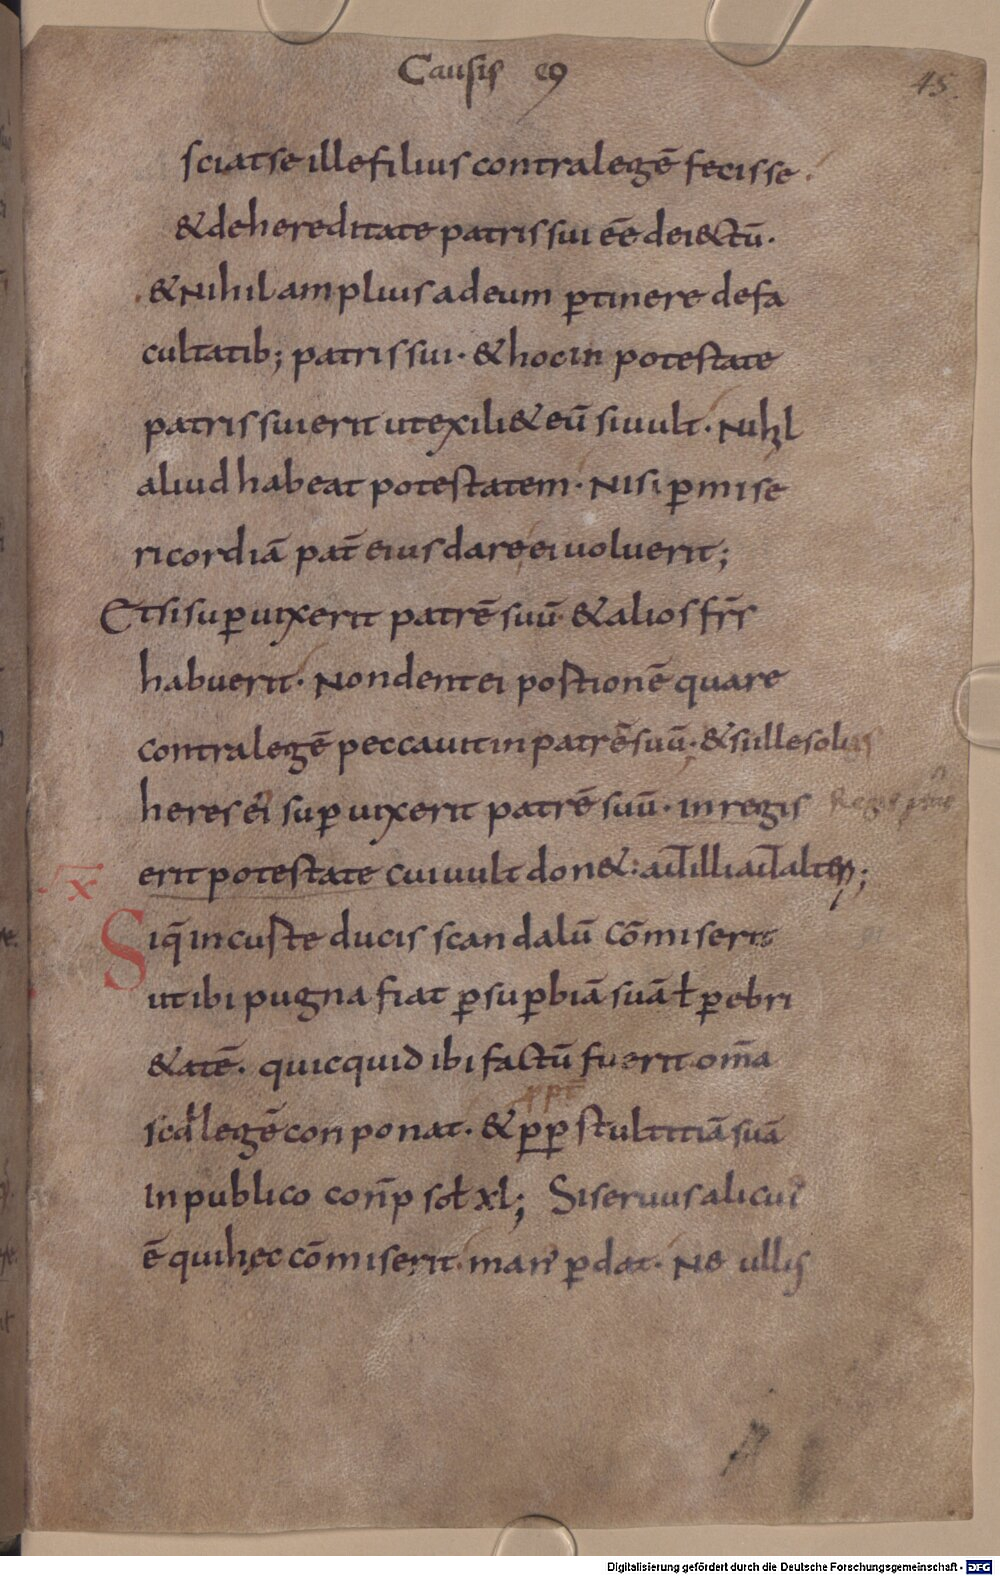 Causis eꝯ
45.
sciatse illefilius contralegē fecisse.
&dehereditate patrissui eē dei&ctū.
&Nihil ampliusadeum ꝑtinere defa
cultatib; patrissui. &hocin potestate
patrissuierit utexili&eū siuult. Nihl
aliud habeat potestatem. Nisi ꝑmise
ricordiā pat̄ eiusdareeiuoluerit;
Etsisuꝑuixerit patrē suū &alios fr̄s
habuerit. Nondentei postionē quare
contralegē peccauitinpatrēsuū. &siillesolus
heres ei suꝑuixerit patrē suū. inregis
Regis
erit potestate cuiuult don&: aut̄illiaut̄alteri;
x
Siq̄incuste ducis scandalū cōmiserit
utibi pugna fiat ꝑsuꝑbiā suā ł ꝑebri
&atē. quicquid ibi factū fuerit om̄a
ppt̄
scd̄legē conponat. &ꝓꝑ stultitiā suā
Inpublico con̄p soł xl; Siseruusalicui'
ē quihęc cōmiserit. man' ꝑdat. Ne ullis
Digitalisierung gefördert durch die Deutsche Forschungsgemeinschaft - DFG